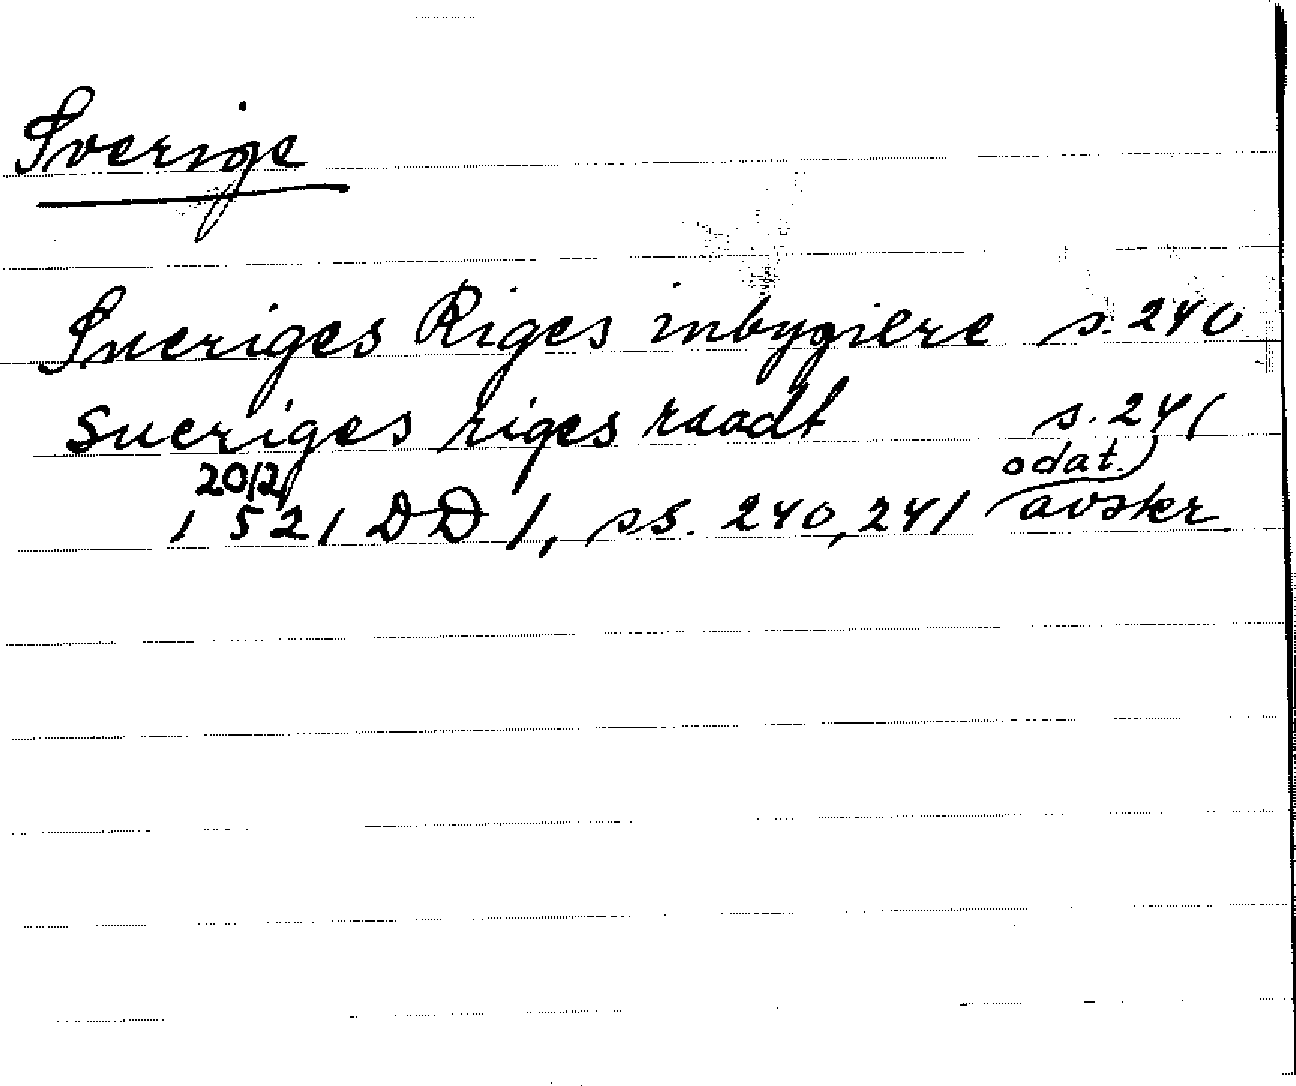 Sverige
Sueriges Riges inbygiere s. 240
Sueriges riges raadt s. 241
20/2 odat.)
1521 DD 1, ss. 240, 241 avskr